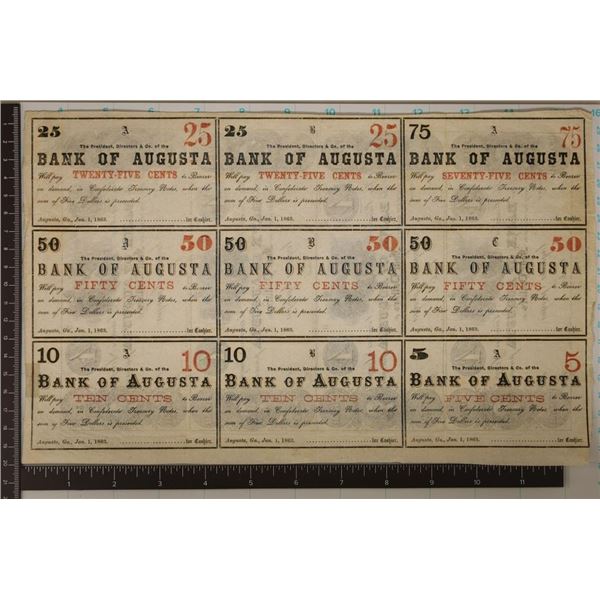 25 A 25
The President, Directors & Co. of the
BANK OF AUGUSTA
Will pay TWENTY-FIVE CENTS to Bearer
on demand, in Confederate Treasury Notes, when the
sum of Five Dollars is presented.
Augusta, Ga., Jan. 1, 1863. for Cashier.
25 B 25
The President, Directors & Co. of the
BANK OF AUGUSTA
Will pay TWENTY-FIVE CENTS to Bearer
on demand, in Confederate Treasury Notes, when the
sum of Five Dollars is presented.
Augusta, Ga., Jan. 1, 1863. for Cashier.
75 A 75
The President, Directors & Co. of the
BANK OF AUGUSTA
Will pay SEVENTY-FIVE CENTS to Bearer
on demand, in Confederate Treasury Notes, when the
sum of Five Dollars is presented.
Augusta, Ga., Jan. 1, 1863. for Cashier.
50 A 50
The President, Directors & Co. of the
BANK OF AUGUSTA
Will pay FIFTY CENTS to Bearer
on demand, in Confederate Treasury Notes, when the
sum of Five Dollars is presented.
Augusta, Ga., Jan. 1, 1863. for Cashier.
50 B 50
The President, Directors & Co. of the
BANK OF AUGUSTA
Will pay FIFTY CENTS to Bearer
on demand, in Confederate Treasury Notes, when the
sum of Five Dollars is presented.
Augusta, Ga., Jan. 1, 1863. for Cashier.
50 C 50
The President, Directors & Co. of the
BANK OF AUGUSTA
Will pay FIFTY CENTS to Bearer
on demand, in Confederate Treasury Notes, when the
sum of Five Dollars is presented.
Augusta, Ga., Jan. 1, 1863. for Cashier.
10 A 10
The President, Directors & Co. of the
BANK OF AUGUSTA
Will pay TEN CENTS to Bearer
on demand, in Confederate Treasury Notes, when the
sum of Five Dollars is presented.
Augusta, Ga., Jan. 1, 1863. for Cashier.
10 B 10
The President, Directors & Co. of the
BANK OF AUGUSTA
Will pay TEN CENTS to Bearer
on demand, in Confederate Treasury Notes, when the
sum of Five Dollars is presented.
Augusta, Ga., Jan. 1, 1863. for Cashier.
5 A 5
The President, Directors & Co. of the
BANK OF AUGUSTA
Will pay FIVE CENTS to Bearer
on demand, in Confederate Treasury Notes, when the
sum of Five Dollars is presented.
Augusta, Ga., Jan. 1, 1863. for Cashier.
1 2 3 4 5 6 7 8 9 10 11